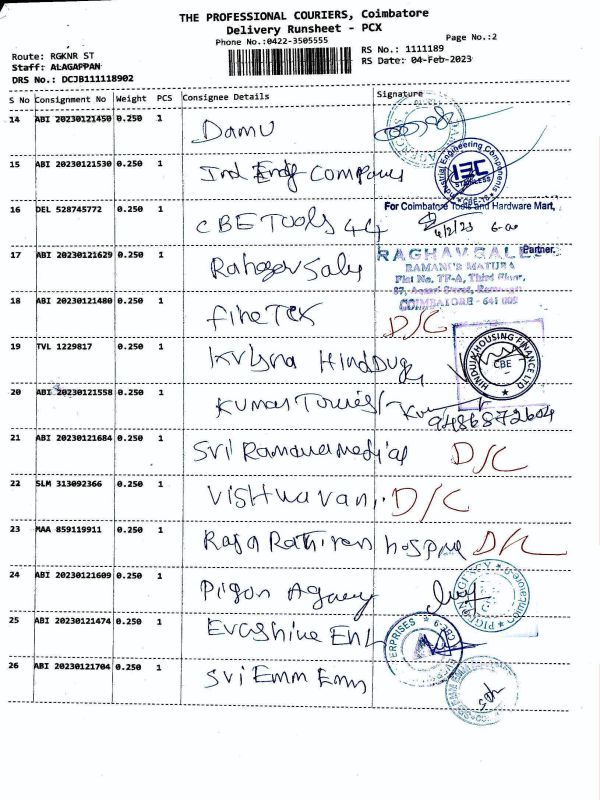 THE PROFESSIONAL COURIERS, Coimbatore
Delivery Runsheet - PCX
Phone No.:0422-3505555
Page No.:2
Route: RGKNR ST
Staff: ALAGAPPAN
DRS No.: DCJB111118902
RS No.: 1111189
RS Date: 04-Feb-2023
S No Consignment No Weight PCS Consignee Details Signature
14 ABI 20230121450 0.250 1 Damu
15 ABI 20230121530 0.250 1 Ind Engg
Industrial Engineering Components
IEC
STAINLESS
CBE-18
16 DEL 528745772 0.250 1 CBE Tools 44
For Coimbatore Tools and Hardware Mart,
4/2/23 6-00
Partner.
17 ABI 20230121629 0.250 1
RAGHAV SALES
RAMANI'S MATURA
Flat No. TF-A, Third Floor,
COIMBATORE - 641 009
18 ABI 20230121480 0.250 1 Fine Tek D/C
19 TVL 1229817 0.250 1 Krishna Hinduja
HINDUJA HOUSING FINANCE LTD
CBE
20 ABI 20230121558 0.250 1 Kumar Tourist
9486872604
21 ABI 20230121684 0.250 1 Sri Ramana Medical D/C
22 SLM 313092366 0.250 1 Vishwavani D/C
23 MAA 859119911 0.250 1 Raja Rathinam hospital D/C
24 ABI 20230121609 0.250 1 Pigon Agency
PIGEON AGENCY
Coimbatore-9
25 ABI 20230121474 0.250 1 Evashine Ent
ERPRISES
CBE-9
26 ABI 20230121704 0.250 1 Sri Emm Emm